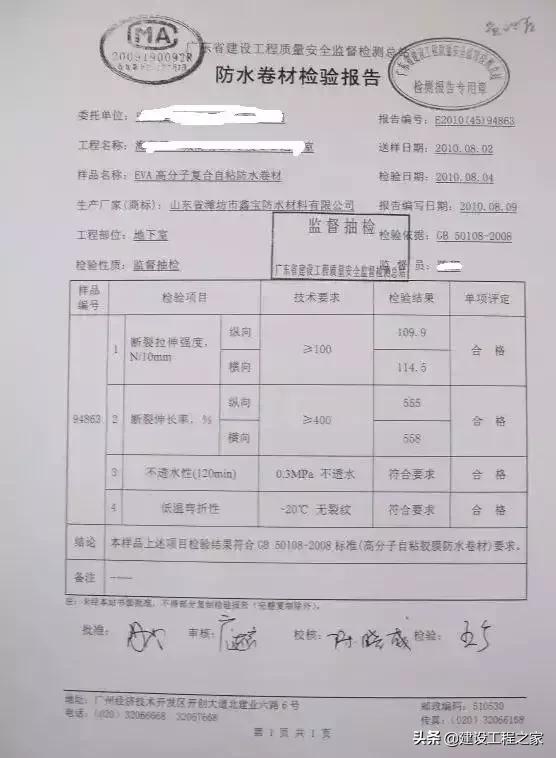 MA
2009190092R
广东省建设工程质量安全监督检测总站
防水卷材检验报告
检测报告专用章
委托单位:
报告编号: E2010(45)94863
工程名称: 室
送样日期: 2010.08.02
样品名称: EVA高分子复合自粘防水卷材
检验日期: 2010.08.04
生产厂家(商标): 山东省潍坊市鑫宝防水材料有限公司
报告编写日期: 2010.08.09
监督抽检
工程部位: 地下室
检验依据: GB 50108-2008
广东省建设工程质量安全监督检测总站
检验性质: 监督抽检
监督员:
样品编号 检验项目 技术要求 检验结果 单项评定
94863
1 断裂拉伸强度, N/10mm 纵向 ≥100 109.9 合格
横向 114.5
2 断裂伸长率, % 纵向 ≥400 555 合格
横向 558
3 不透水性(120min) 0.3MPa 不透水 符合要求 合格
4 低温弯折性 -20℃ 无裂纹 符合要求 合格
结论 本样品上述项目检验结果符合GB 50108-2008标准(高分子自粘胶膜防水卷材)要求。
备注 ——
注: 未经本站书面批准, 不得部分复制检验报告(完整复制除外)。
批准: 审核: 校核: 检验:
地址: 广州经济技术开发区开创大道北建业六路6号
邮政编码: 510530
电话: (020) 32066668 32067668
传真: (020) 32066168
第 1 页 共 1 页
头条 @建设工程之家